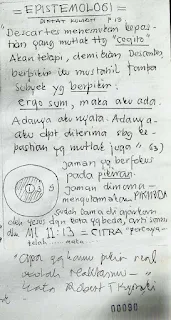 = EPISTEMOLOGI =
DIKTAT KULIAH P 13
"Descartes menemukan kepas-
tian yang mutlak ttg "Cogito"
Akan tetapi, demikian Descartes,
berpikir itu mustahil tanpa
subyek yg berpikir.
ergo sum, maka aku ada.
Adanya aku nyata. Adanya-
aku dpt diterima sbg ke-
pastian yg mutlak juga" 63)
jaman yg berfokus
pada pikiran.
jaman dimana
mengutamakan PIKIRAN
sudah lama di
oleh yesus dan kata yg beda, arti sama
dlm Mt. 11:13 = CITRA "percaya-
"Apa yg kamu pikir real
adalah realitasmu - "
kata Robert T Kyosaki
00090